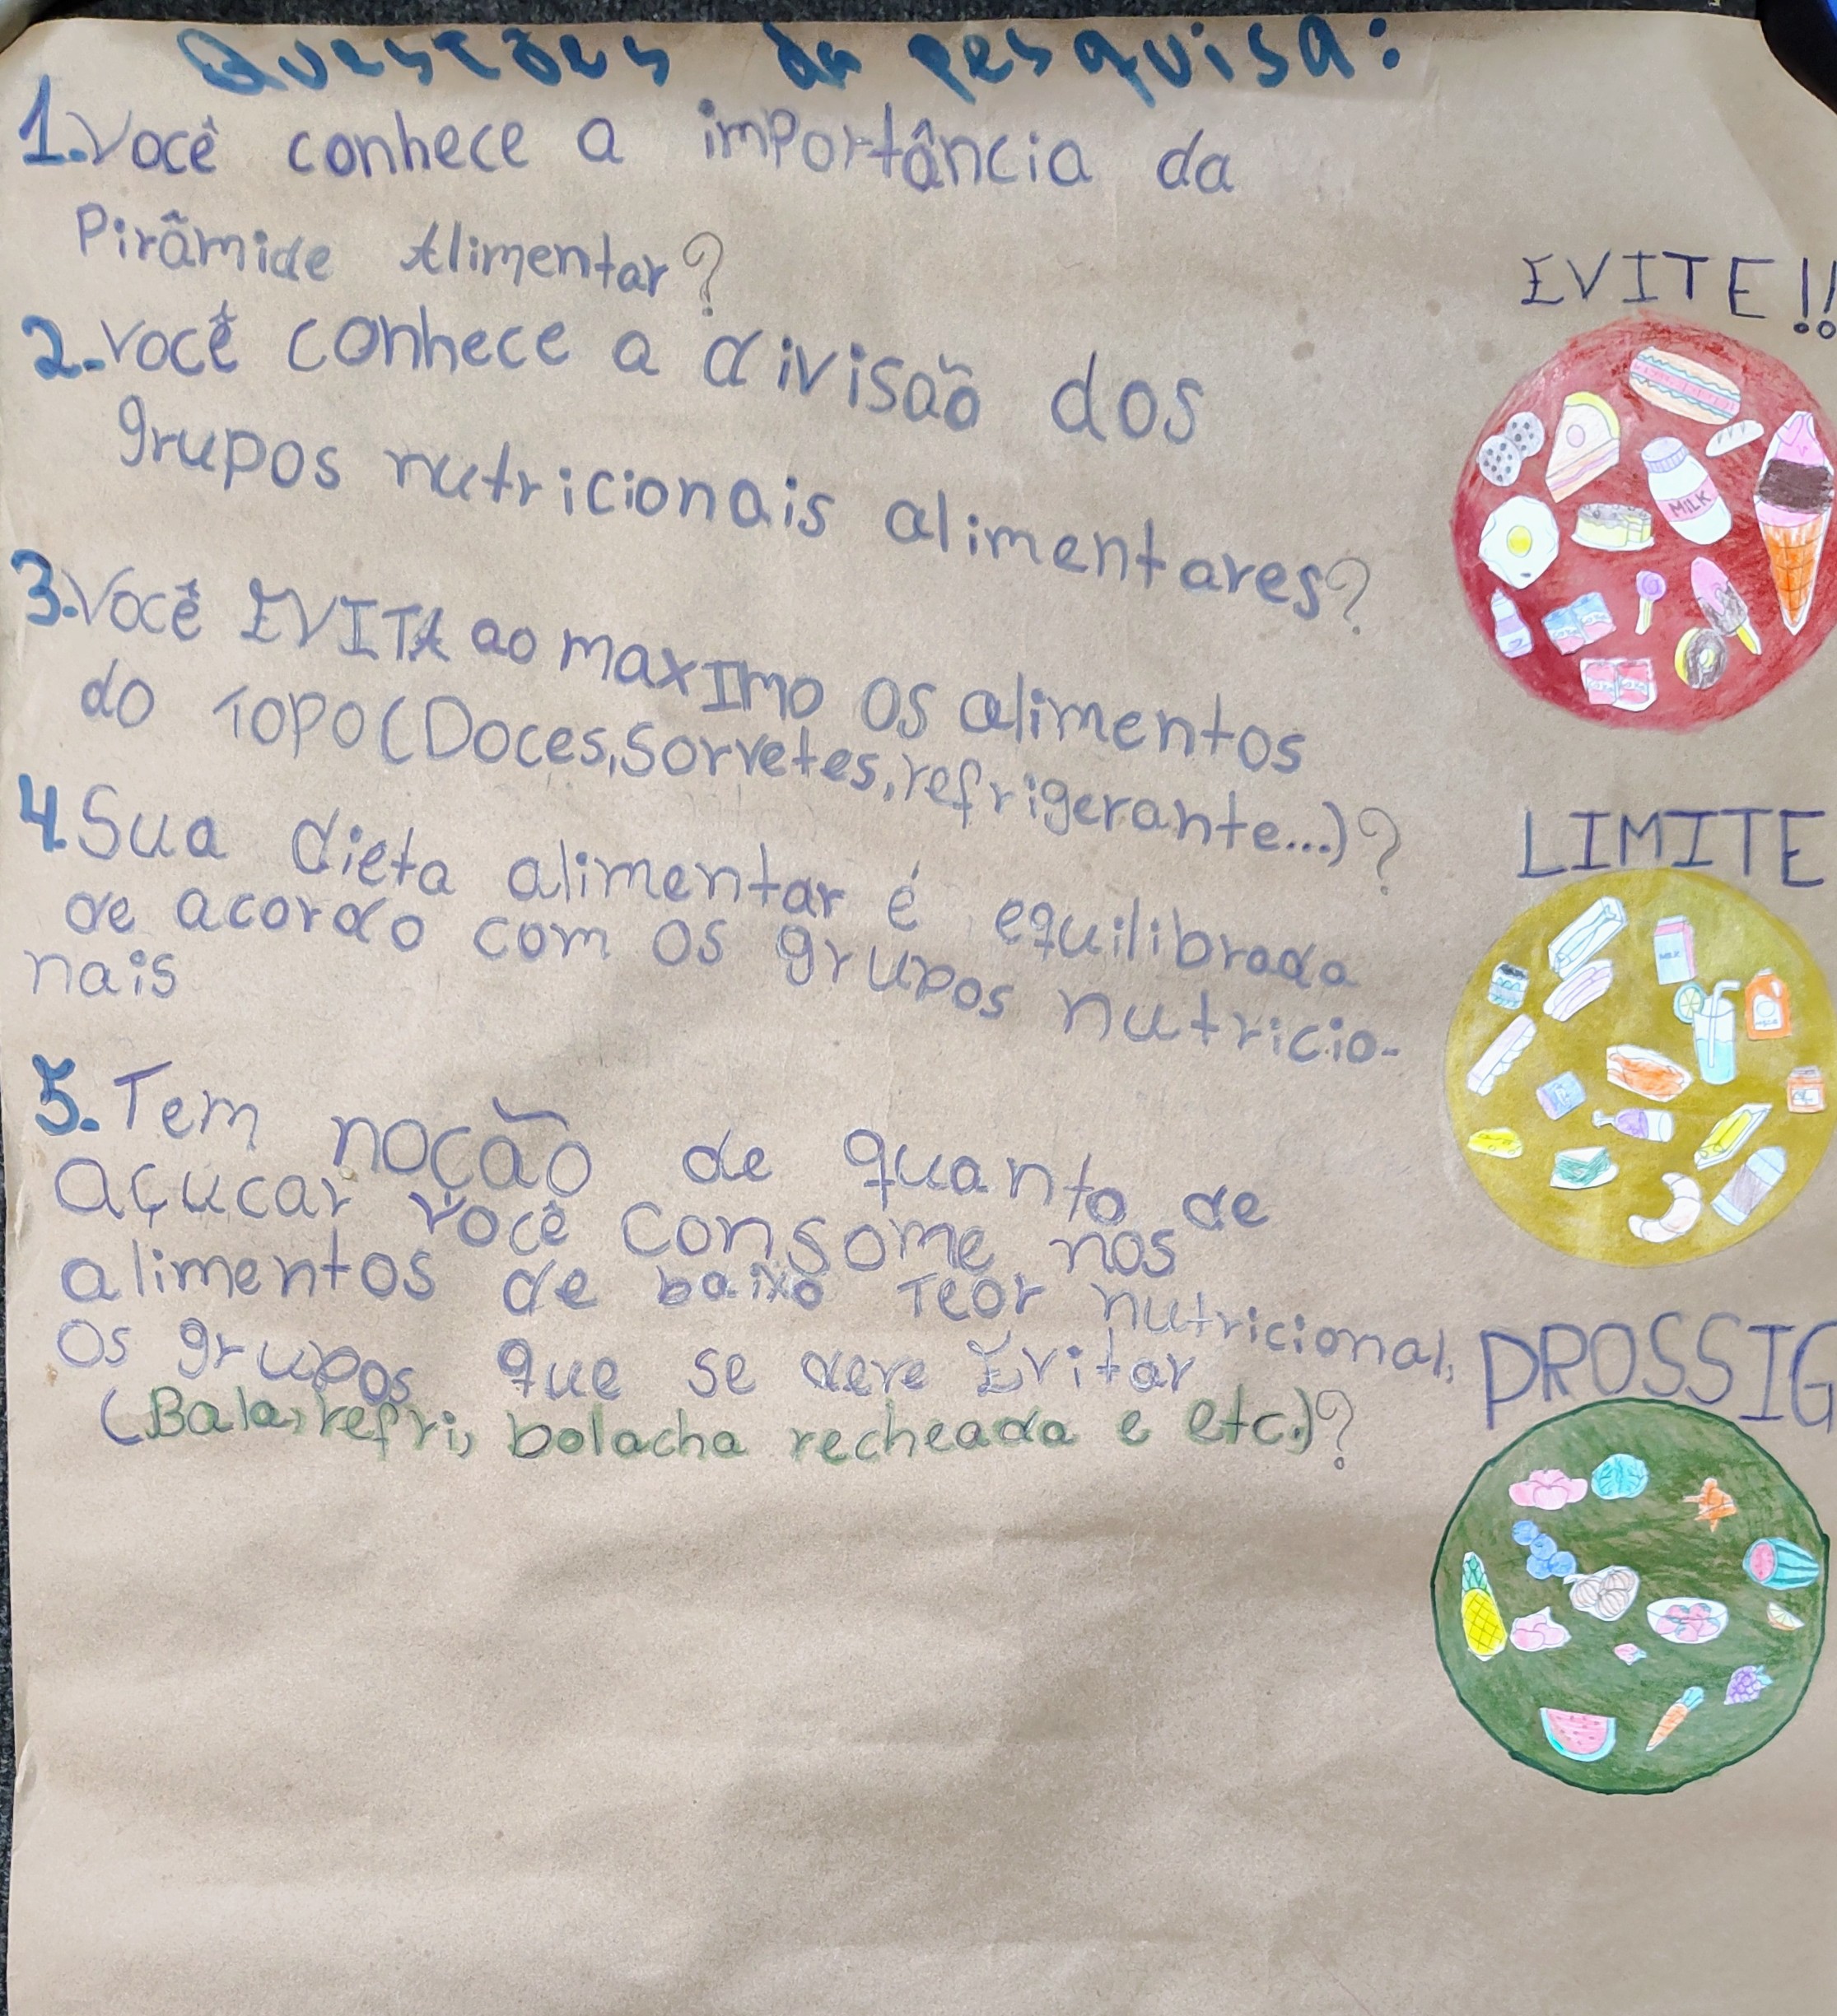 Questões da pesquisa:
1. Você conhece a importância da
Pirâmide Alimentar?
2. Você conhece a divisaõ dos
grupos nutricionais alimentares?
3. Você EVITA ao maxImo os alimentos
do Topo (Doces, Sorvetes, refrigerante...)?
4. Sua dieta alimentar é equilibrada
de acordo com os grupos nutricio-
nais
5. Tem noção de quanto de
açucar você consome nos
alimentos de baixo Teor nutricional,
os grupos que se deve Evitar
(Bala, refri, bolacha recheada e etc.)?
EVITE!!
MILK
LIMITE
MILK
PROSSIG